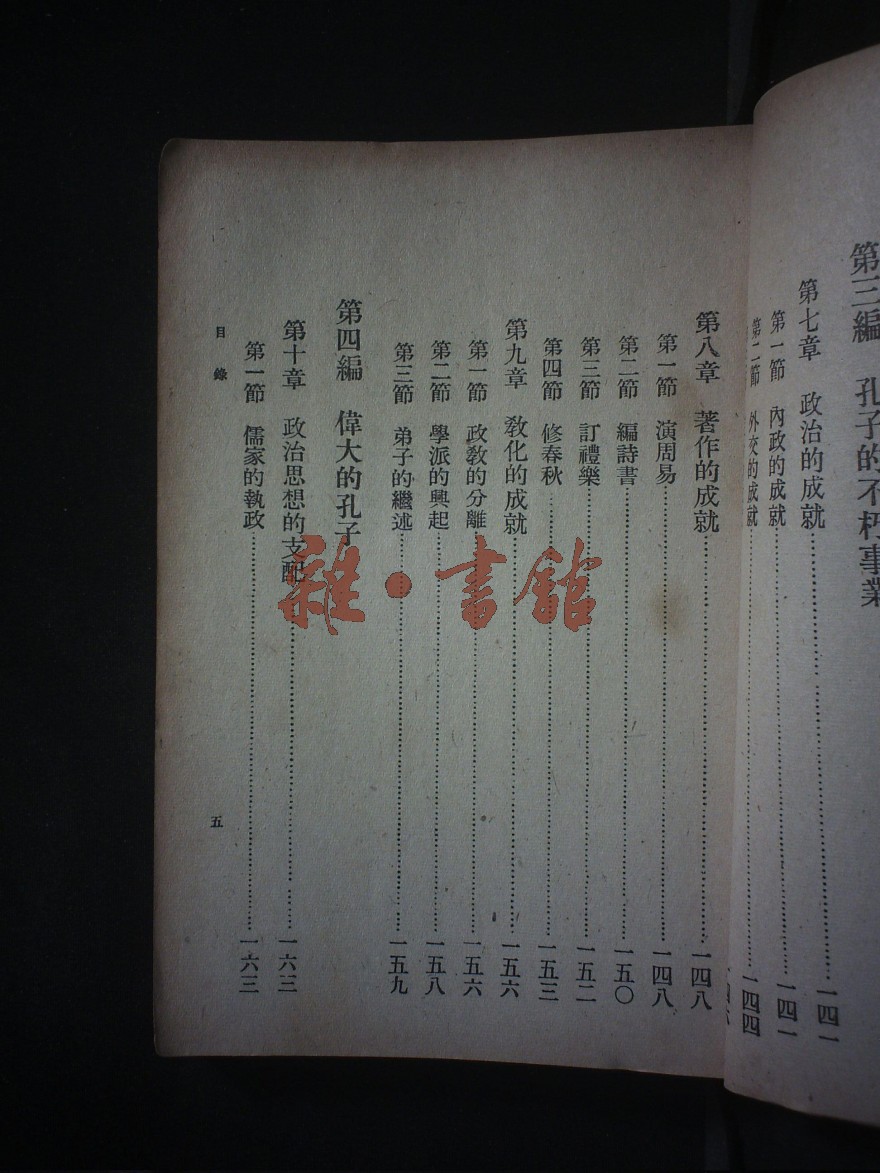 第三編　孔子的不朽事業
第七章　政治的成就……一四一
第一節　內政的成就……一四一
第二節　外交的成就……一四四
第八章　著作的成就……一四八
第一節　演周易……一四八
第二節　編詩書……一五〇
第三節　訂禮樂……一五二
第四節　修春秋……一五三
第九章　敎化的成就……一五六
第一節　政敎的分離……一五六
第二節　學派的興起……一五八
第三節　弟子的繼述……一五九
第四編　偉大的孔子
第十章　政治思想的支配……一六三
第一節　儒家的執政……一六三
目錄
五
雜·書館